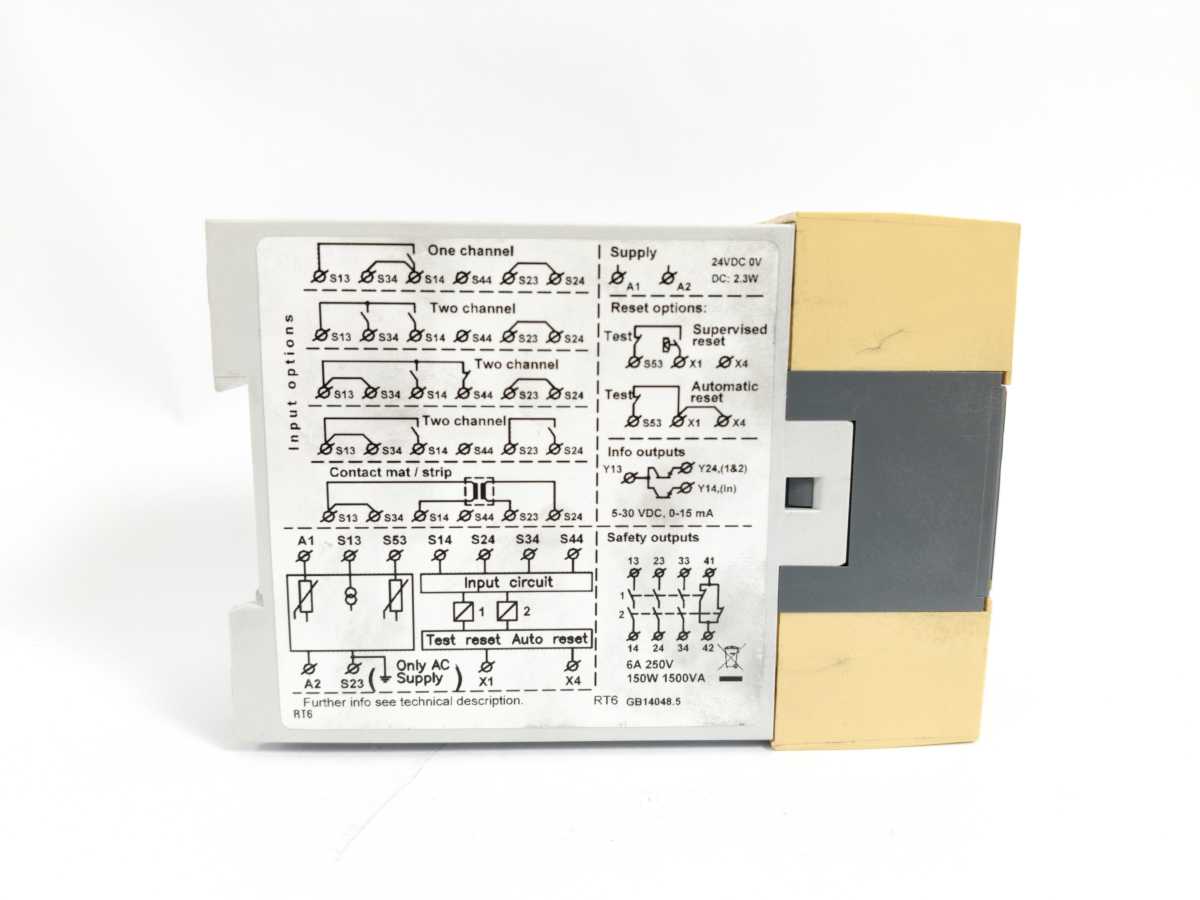 Input options
One channel
S13 S34 S14 S44 S23 S24
Two channel
S13 S34 S14 S44 S23 S24
Two channel
S13 S34 S14 S44 S23 S24
Two channel
S13 S34 S14 S44 S23 S24
Contact mat / strip
S13 S34 S14 S44 S23 S24
Supply
24VDC 0V
A1 A2 DC: 2.3W
Reset options:
Test Supervised
reset
S53 X1 X4
Automatic
Test reset
S53 X1 X4
Info outputs
Y13 Y24,(1&2)
Y14,(In)
5-30 VDC, 0-15 mA
A1 S13 S53 S14 S24 S34 S44
Input circuit
1 2
Test reset Auto reset
A2 S23 (Only AC
Supply) X1 X4
Safety outputs
13 23 33 41
1
2
14 24 34 42
6A 250V
150W 1500VA
Further info see technical description.
RT6 GB14048.5
RT6